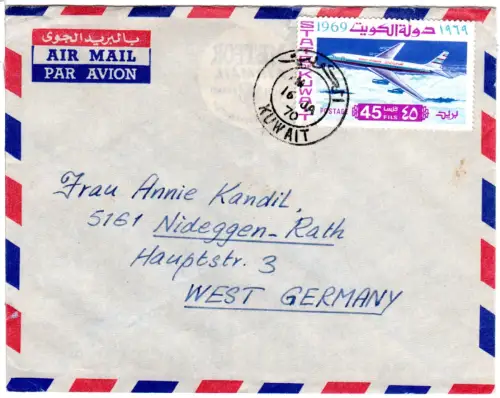 بالبريد الجوى
AIR MAIL
PAR AVION
STATE OF KUWAIT
1969 دولة الكويت ١٩٦٩
POSTAGE 45 FILS فلسا ٤٥ بريد
الكويت
16
70
KUWAIT
Frau Annie Kandil
5161 Nideggen-Rath
Hauptstr. 3
WEST GERMANY